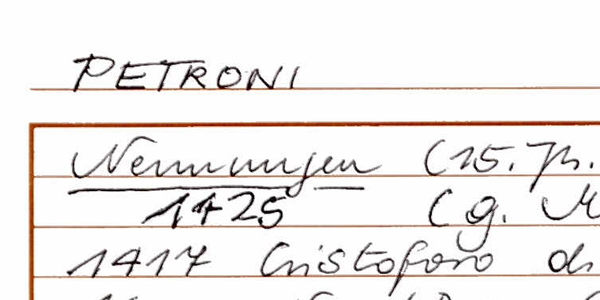 PETRONI
Nennungen (15. Jh.
1425 (g. M
1417 Cristoforo di